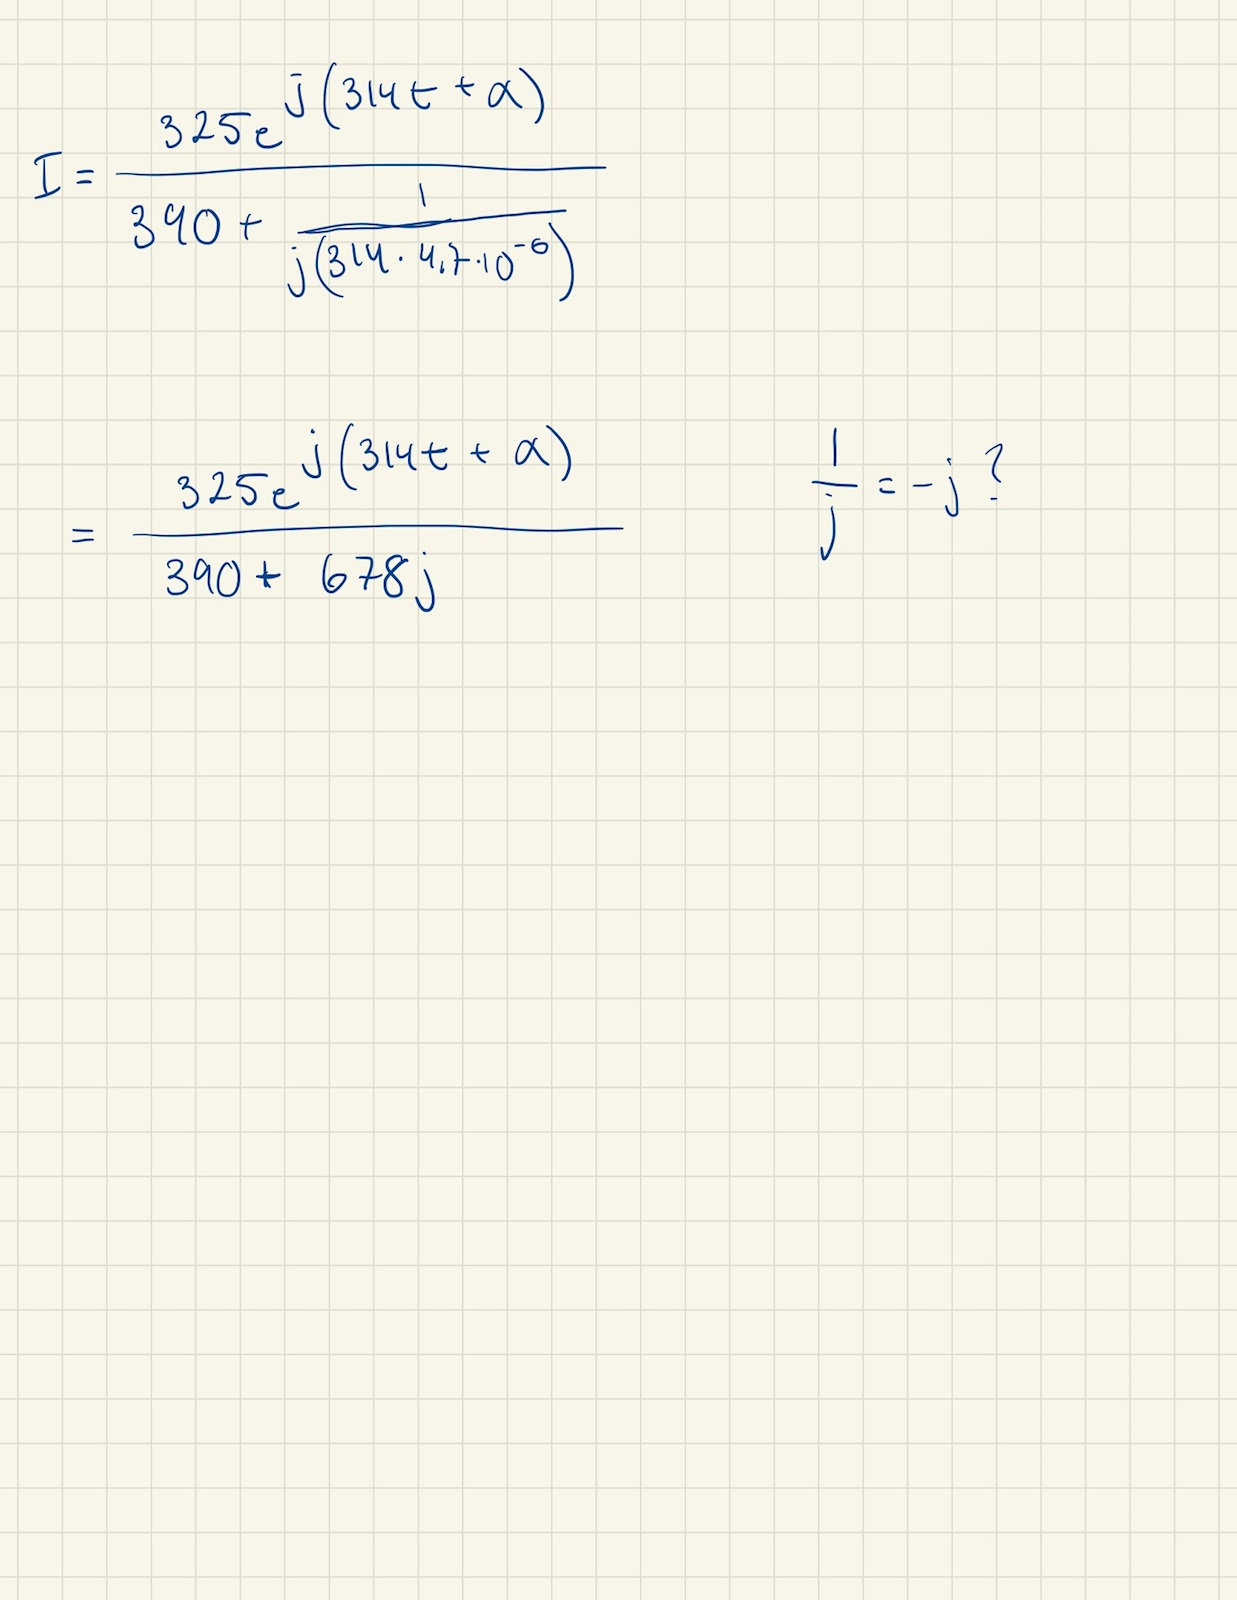 I = 325e^{j(314t + α)} / (390 + 1 / (j(314 · 4,7 · 10^{-6})))
= 325e^{j(314t + α)} / (390 + 678j)
1/j = -j ?